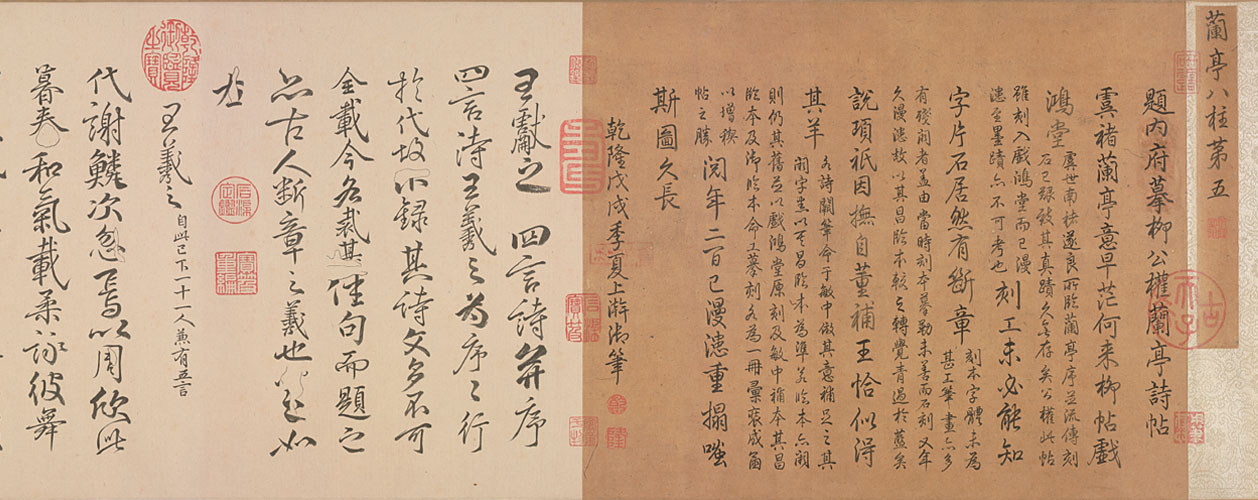 蘭亭八柱第五
題內府摹柳公權蘭亭詩帖
虞褚蘭亭意早茫何来柳帖戲
鴻堂
虞世南褚遂良所臨蘭亭序並流傳刻
石已疑敓其真蹟久無存矣公權此帖
雖刻入戲鴻堂而已漫
漶至墨蹟亦不可考也
刻工未必能知
字片石居然有斷章
刻本字體未為
甚工筆畫亦多
有殘闕者蓋由當時刻本摹勒未善而石刻又年
久漫漶故以其昌臨本較之轉覺青過於藍矣
說項祇因撫自董補王恰似得
其羊
為詩闕筆命于敏中倣其意補足之其
闕字悉以其昌臨本為準若臨本亦闕
則仍其舊並以戲鴻堂原刻及敏中補本其昌
臨本及御臨本命工摹刻各為一冊彙裒成簡
以增禊
帖之勝
閱年二百已漫漶重搨嗤
斯圖久長
乾隆戊戌季夏上澣御筆
王獻之 四言詩并序
四言詩王羲之為序序行
於代故不録其詩文多不可
全載今各裁其佳句而題之
亦古人斷章之義也
王羲之 自此已下一十一人兼有五言
代謝鱗次忽焉以周欣此
暮春和氣載柔詠彼舞